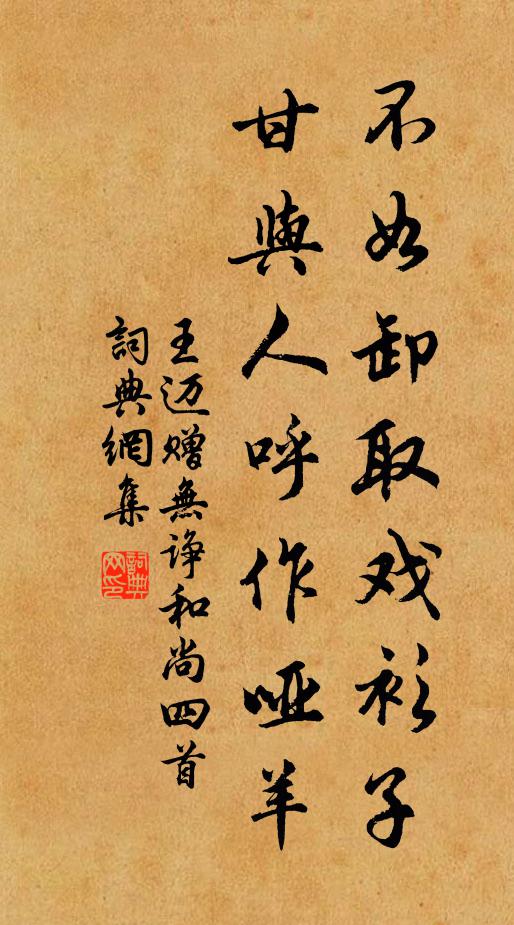 不如卸取戏衫子
甘與人呼作哑羊
王迈赠無诤和尚四首
詞典網集
詞典网印